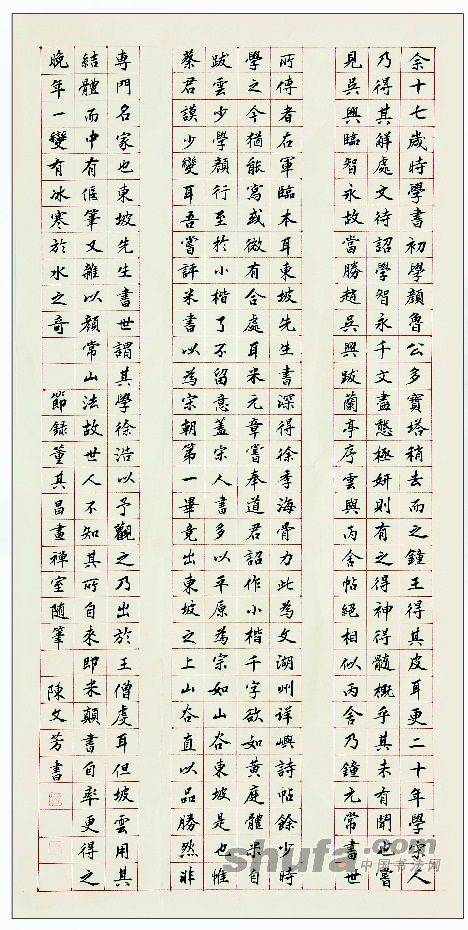 余十七歲時學書初學顏魯公多寶塔稍去而之鐘王得其皮耳更二十年學宋人
乃得其解處文待詔學智永千文盡態極妍則有之得神得髓概乎其未有聞也嘗
見吳興臨智永故當勝趙吳興跋蘭亭序雲與丙舍帖絕相似丙舍乃鐘元常書世
所傳者右軍臨本耳東坡先生書深得徐季海骨力此為文湖州詳嶼詩帖餘少時
學之今猶能寫或微有合處耳米元章嘗奉道君詔作小楷千字欲如黃庭體米自
跋雲少學顏行至於小楷了不留意蓋宋人書多以平原為宗如山谷東坡是也惟
蔡君謨少變耳吾嘗評米書以為宋朝第一畢竟出東坡之上山谷直以品勝然非
專門名家也東坡先生書世謂其學徐浩以予觀之乃出於王僧虔耳但坡雲用其
結體而中有偃筆又雜以顏常山法故世人不知其所自來即米顛書自率更得之
晚年一變有冰寒於水之奇 節錄董其昌畫禪室隨筆 陳文芳書
shufa.com
中国书法网